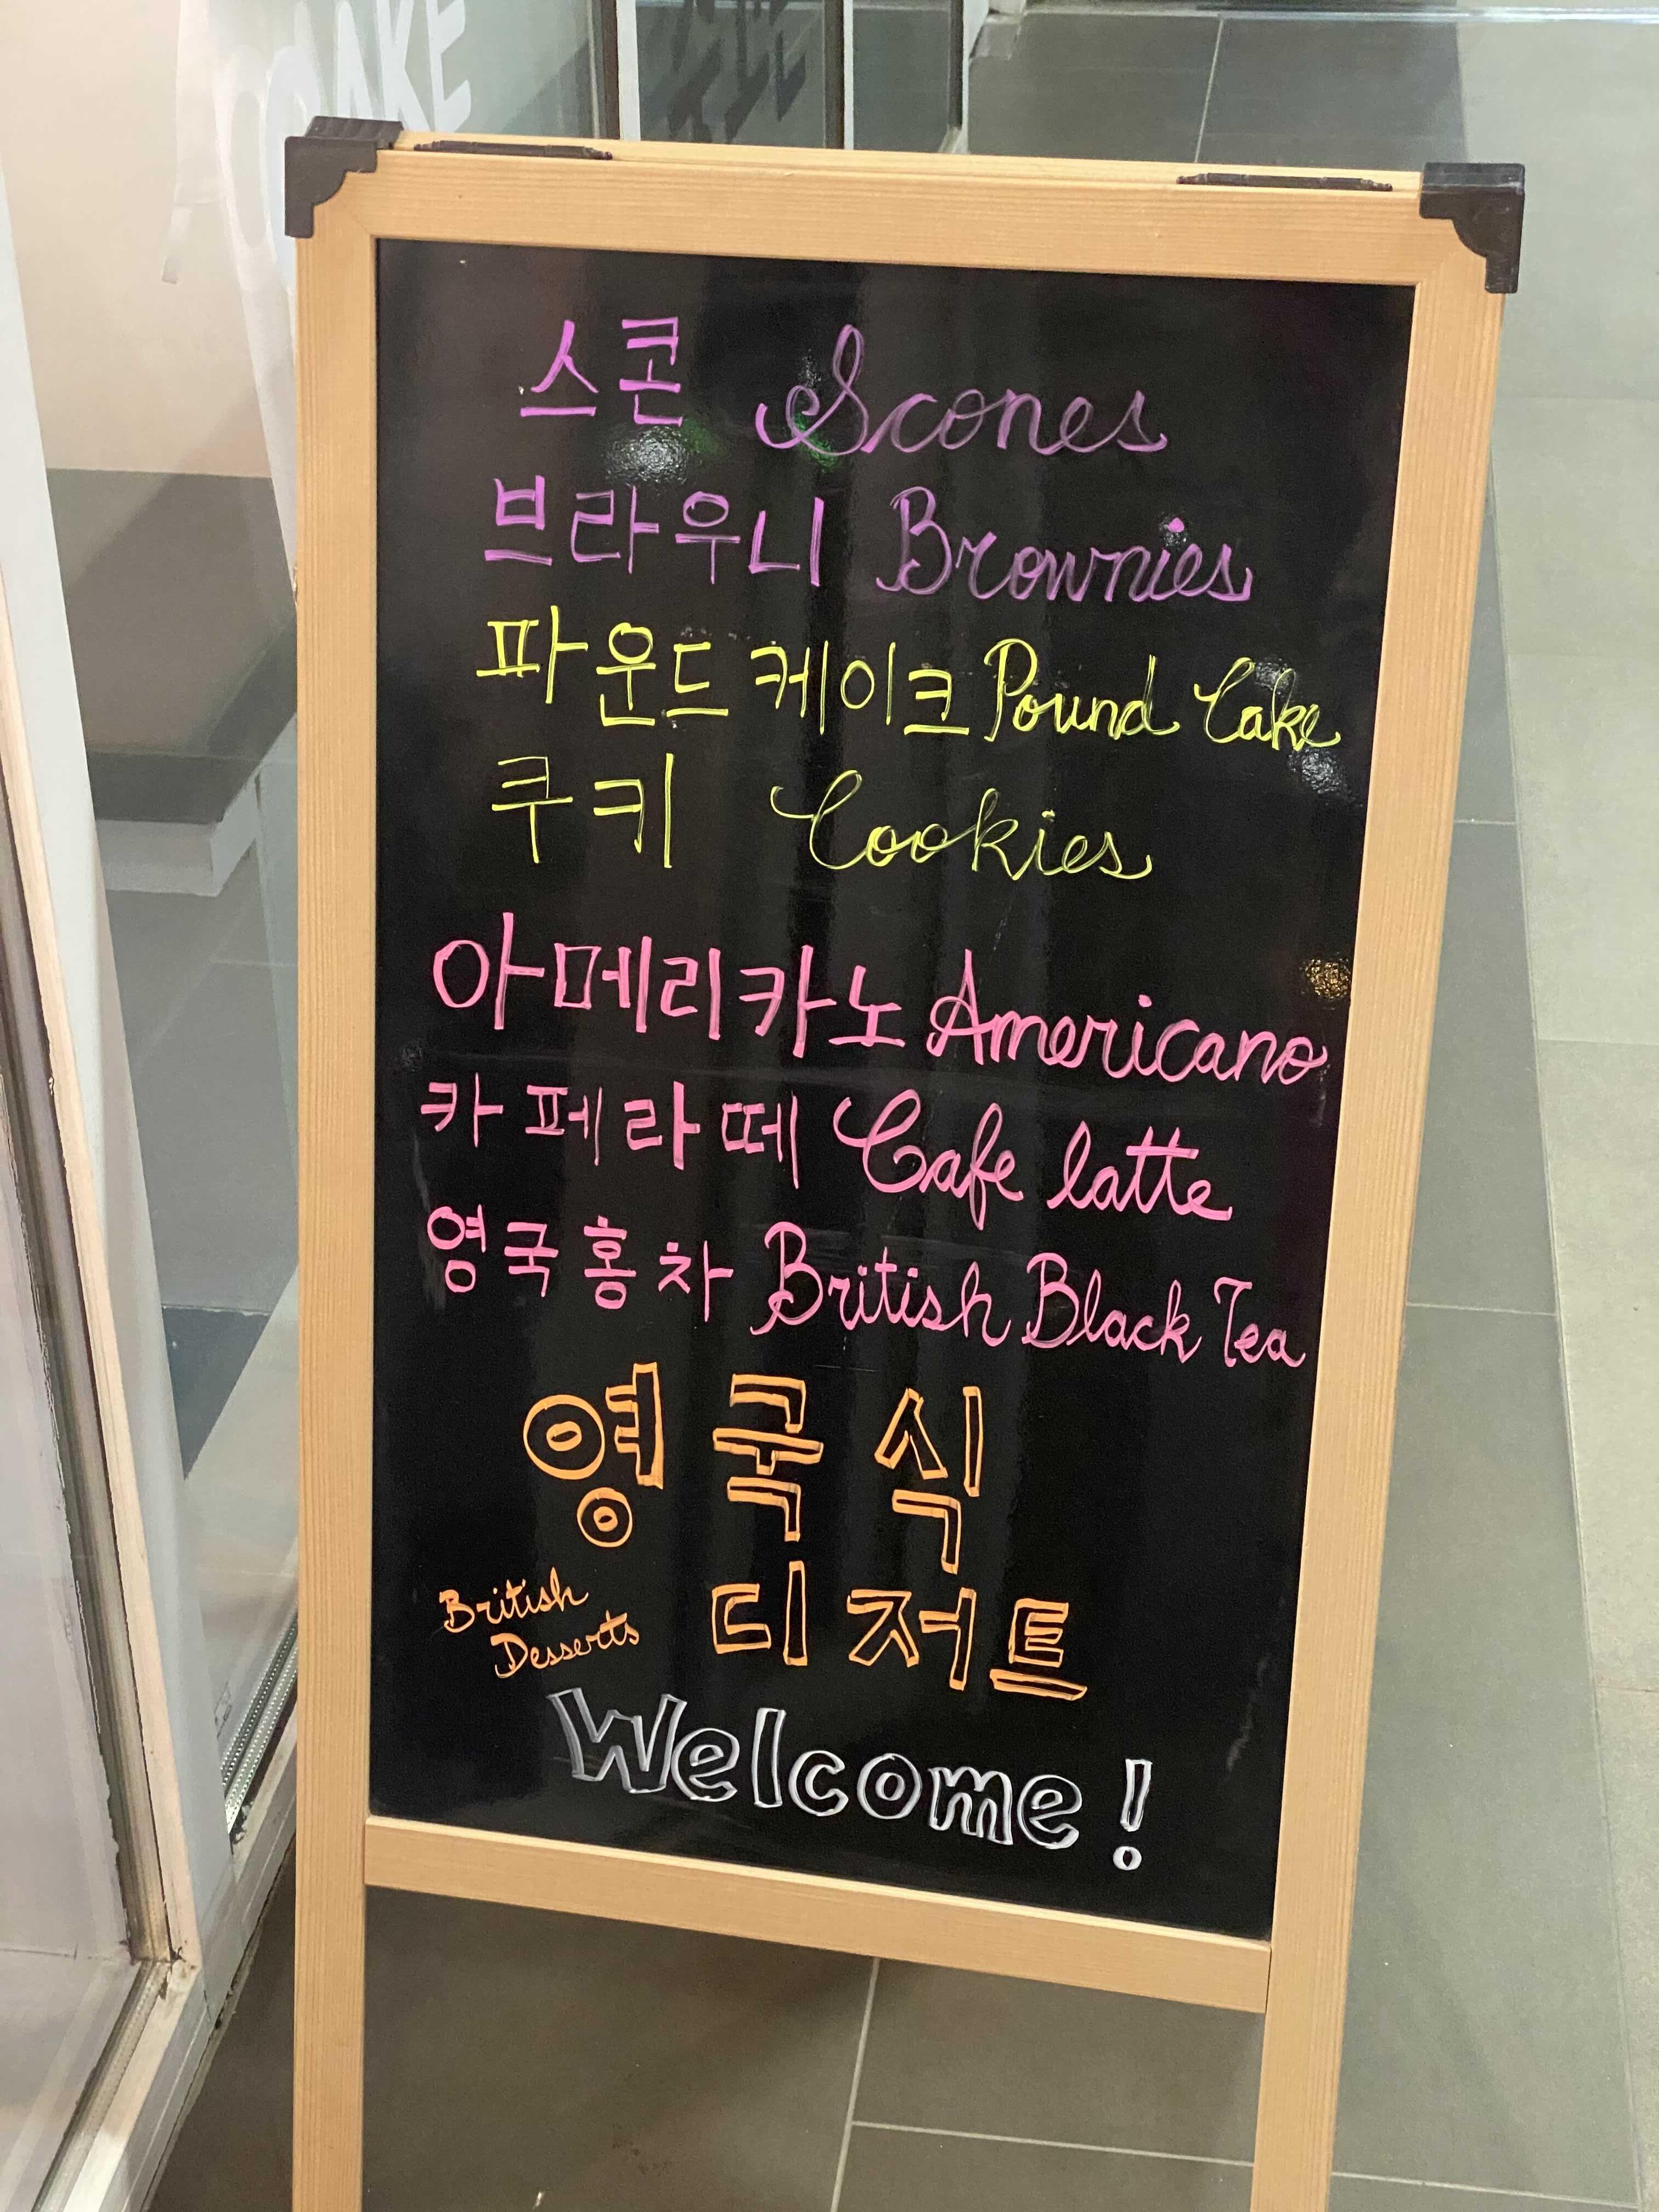 스콘 Scones
브라우니 Brownies
파운드 케이크 Pound Cake
쿠키 Cookies
아메리카노 Americano
카페라떼 Cafe latte
영국홍차 British Black Tea
영국식
British
Desserts
디저트
Welcome!
CAKE